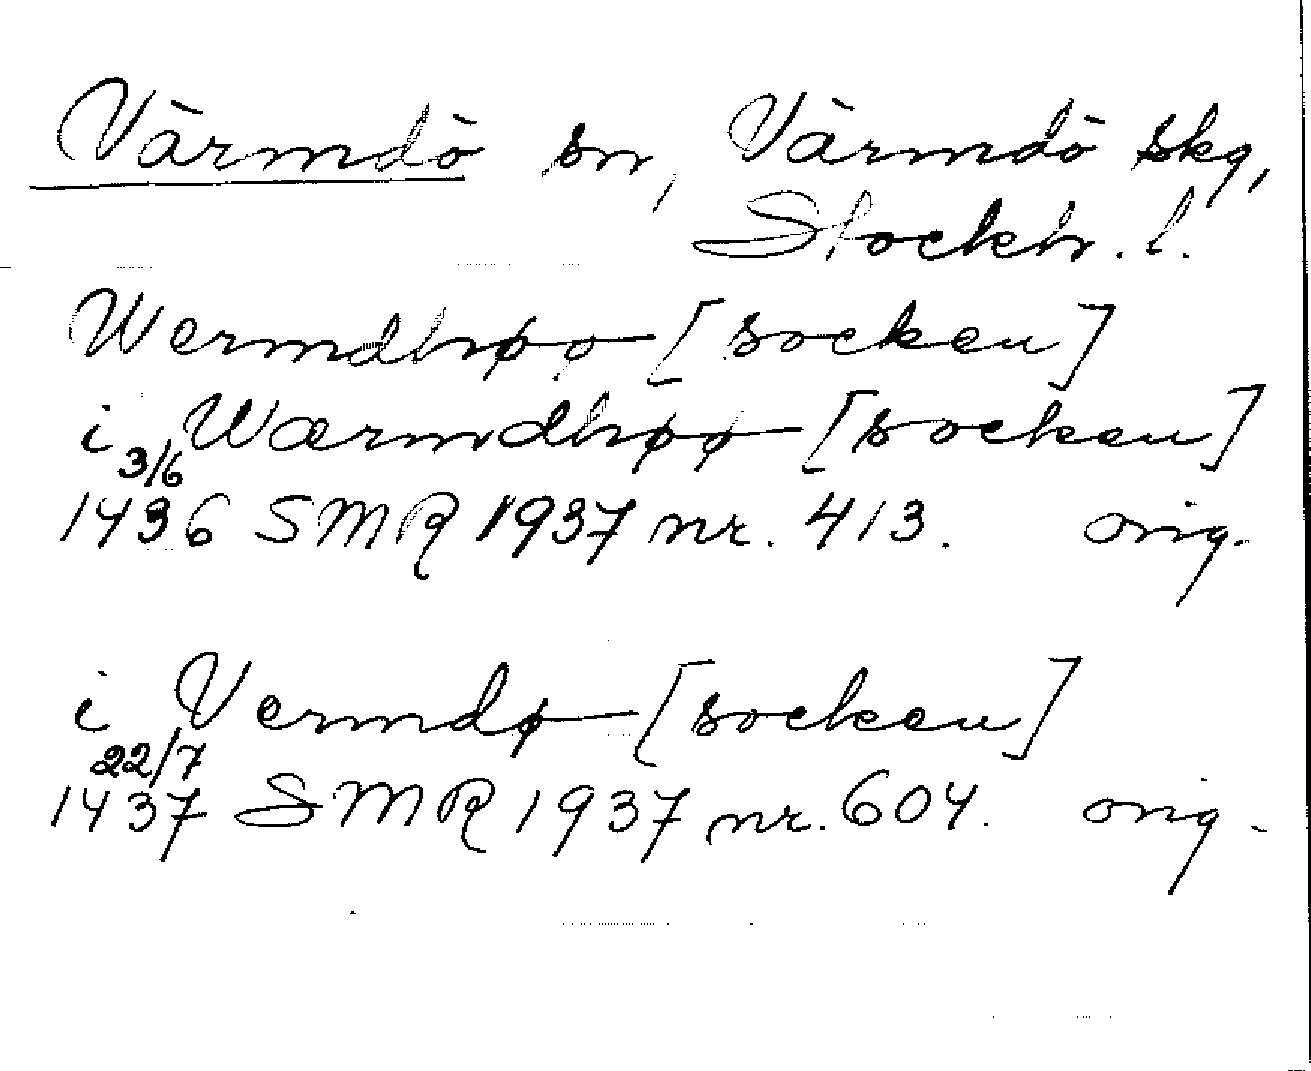 Värmdö sn, Värmdö skg,
Stockh. l.
Wermdhøø [socken]
i Wærmdhøø [socken]
3/6
1436 SMR 1937 nr. 413. orig.
i Vermdø [socken]
22/7
1437 SMR 1937 nr. 604. orig.